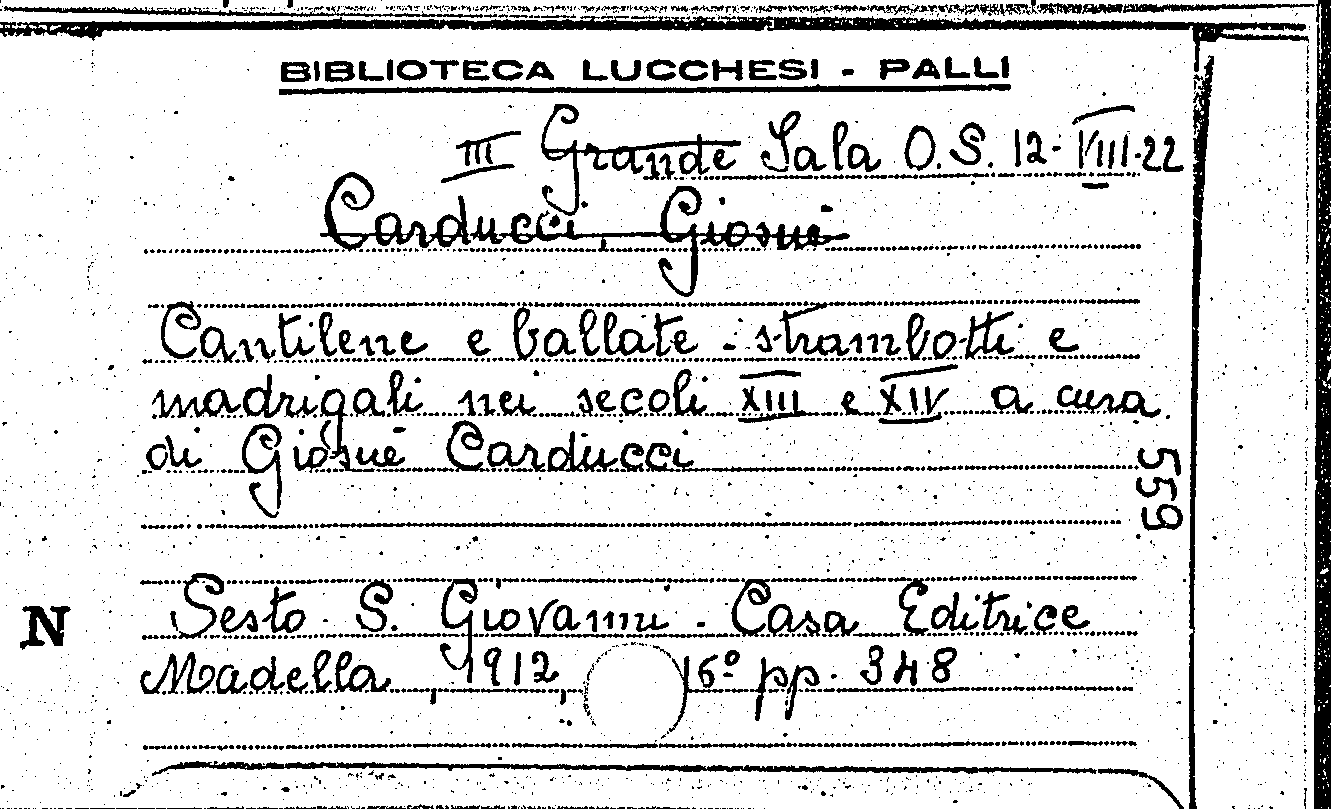 BIBLIOTECA LUCCHESI - PALLI
III Grande Sala O.S. 12-VIII.22
Carducci, Giosuè
Cantilene e ballate - strambotti e
madrigali nei secoli XIII e XIV a cura
di Giosuè Carducci
559
N
Sesto S. Giovanni - Casa Editrice
Madella, 1912, 16º pp. 348